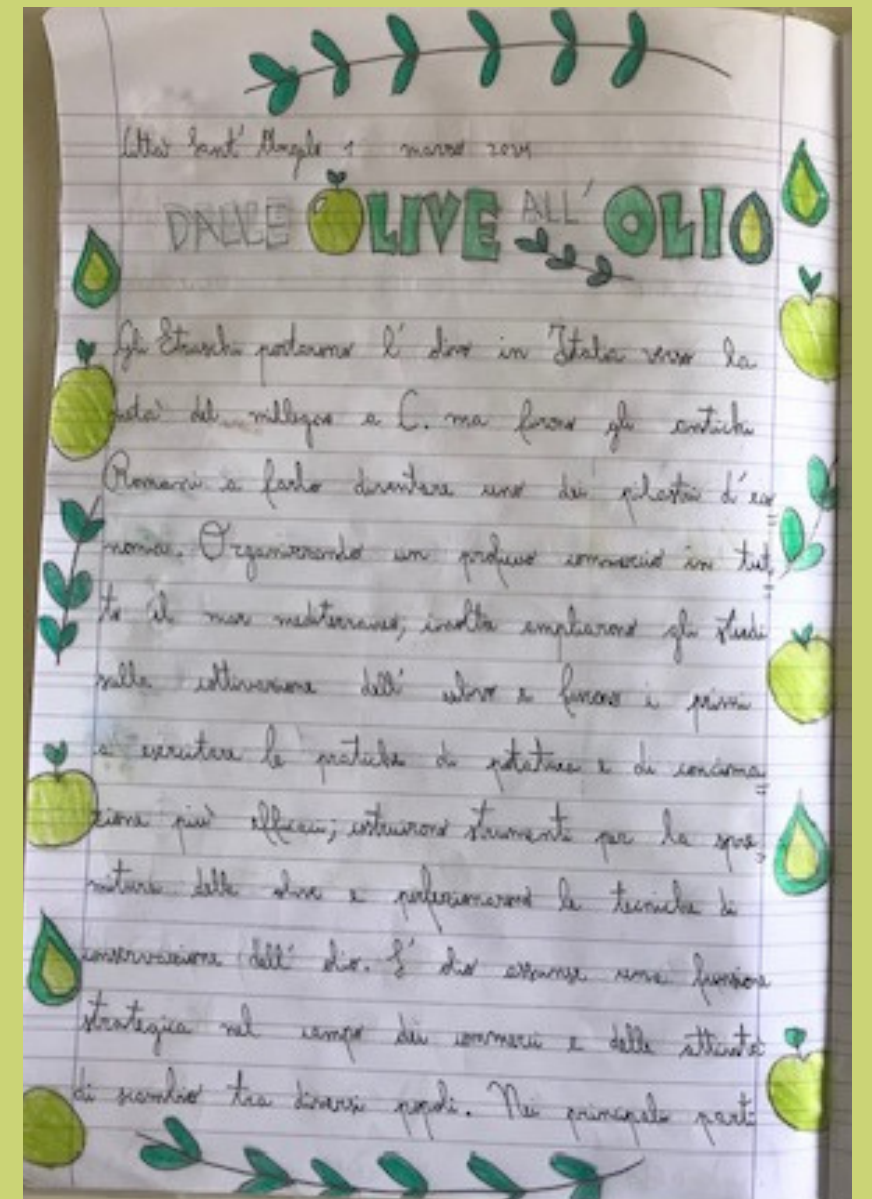 Città Sant' Angelo 1 marzo 2024
DALLE OLIVE ALL' OLIO
Gli Etruschi portarono l' olivo in Italia verso la
metà del millegno a C. ma furono gli antichi
Romani a farlo diventare uno dei pilastri d' eco
nomia. Organizzando un proficuo commercio in tut
to il mar mediterraneo; inoltre ampliarono gli studi
sulla coltivazione dell' ulivo e furono i primi
a esercitare le pratiche di potatura e di concima
zione più efficaci; costruirono strumenti per la spre
mitura delle olive e perfezionarono le tecniche di
conservazione dell' olio. L' olio assunse una funzione
strategica nel campo dei commerci e delle attività
di scambio tra diversi popoli. Nei principali porti